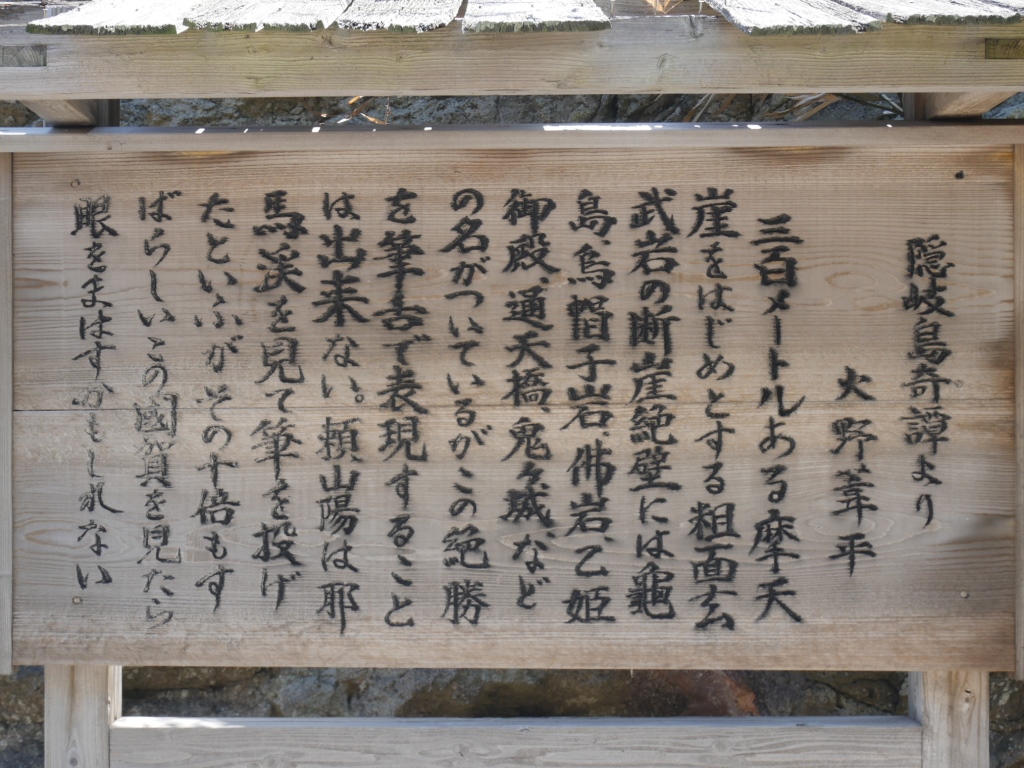 隠岐島奇譚より
火野葦平
三百メートルある摩天
崖をはじめとする粗面玄
武岩の断崖絶壁には龜
島、烏帽子岩、佛岩、乙姫
御殿、通天橋、鬼々城、など
の名がついているがこの絶勝
を筆舌で表現すること
は出来ない。頼山陽は耶
馬渓を見て筆を投げ
たといふがその十倍もす
ばらしいこの國賀を見たら
眼をまはすかもしれない